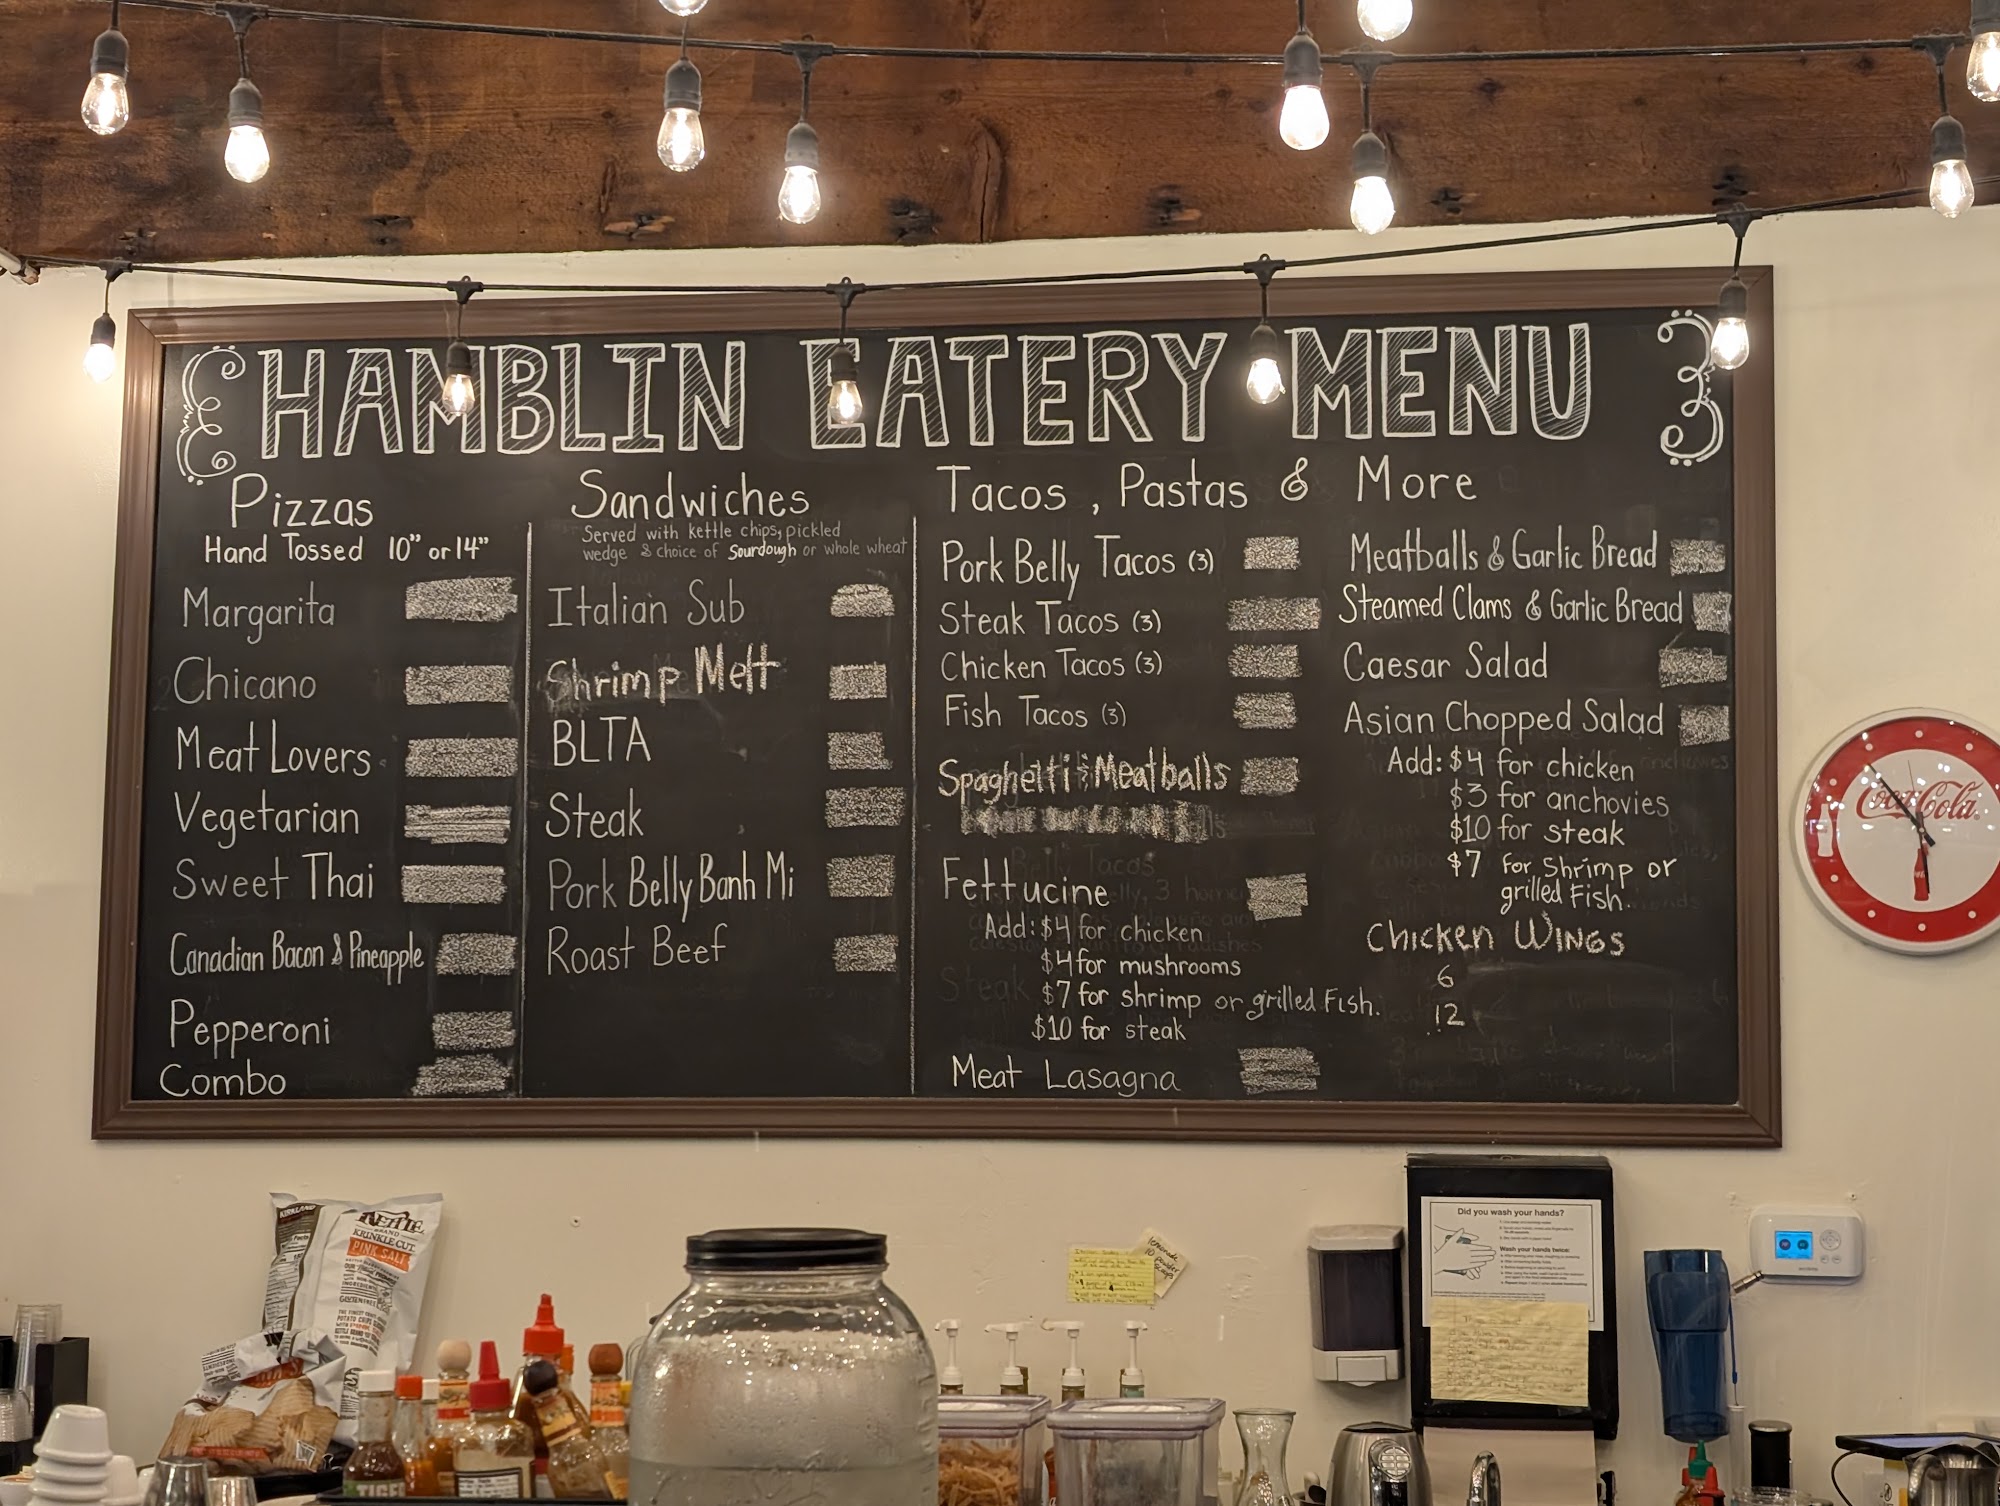 HAMBLIN EATERY MENU
Pizzas
Hand Tossed 10" or 14"
Margarita
Chicano
Meat Lovers
Vegetarian
Sweet Thai
Canadian Bacon & Pineapple
Pepperoni
Combo
Sandwiches
Served with kettle chips, pickled
wedge & choice of Sourdough or whole wheat
Italian Sub
Shrimp Melt
BLTA
Steak
Pork Belly Banh Mi
Roast Beef
Tacos, Pastas & More
Pork Belly Tacos (3)
Steak Tacos (3)
Chicken Tacos (3)
Fish Tacos (3)
Spaghetti & Meatballs
Fettucine
Add: $4 for chicken
$4 for mushrooms
$7 for shrimp or grilled Fish.
$10 for steak
Meat Lasagna
Meatballs & Garlic Bread
Steamed Clams & Garlic Bread
Caesar Salad
Asian Chopped Salad
Add: $4 for chicken
$3 for anchovies
$10 for steak
$7 for Shrimp or
grilled Fish.
Chicken Wings
6
12
Coca-Cola
KIRKLAND
KETTLE
BRAND
KRINKLE CUT
PINK SALT
TIGER
lemonade
10 powder
scoops
Did you wash your hands?
Wash your hands twice: